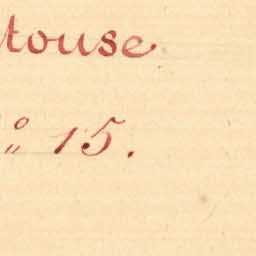 touse
º 15.